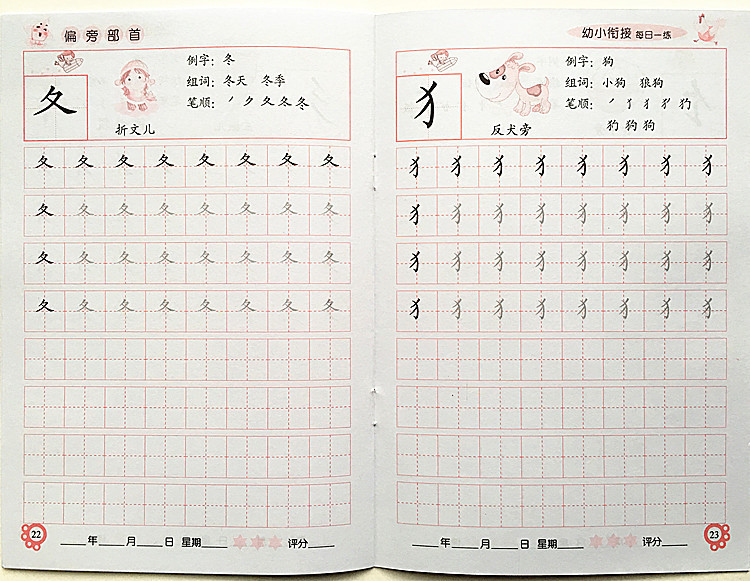 偏旁部首
夂
例字：冬
组词：冬天 冬季
笔顺：丿 ク 夂 冬 冬
折文儿
夂 夂 夂 夂 夂 夂 夂 夂
夂 夂 夂 夂 夂 夂 夂 夂
夂 夂 夂 夂 夂 夂 夂 夂
夂 夂 夂 夂 夂 夂 夂 夂
22
年 月 日 星期 评分
幼小衔接 每日一练
犭
例字：狗
组词：小狗 狼狗
反犬旁
笔顺：
狗
犭 犭 犭 犭 犭 犭 犭 犭
犭 犭 犭 犭 犭 犭 犭 犭
犭 犭 犭 犭 犭 犭 犭 犭
犭 犭 犭 犭 犭 犭 犭 犭
年 月 日 星期 评分
23